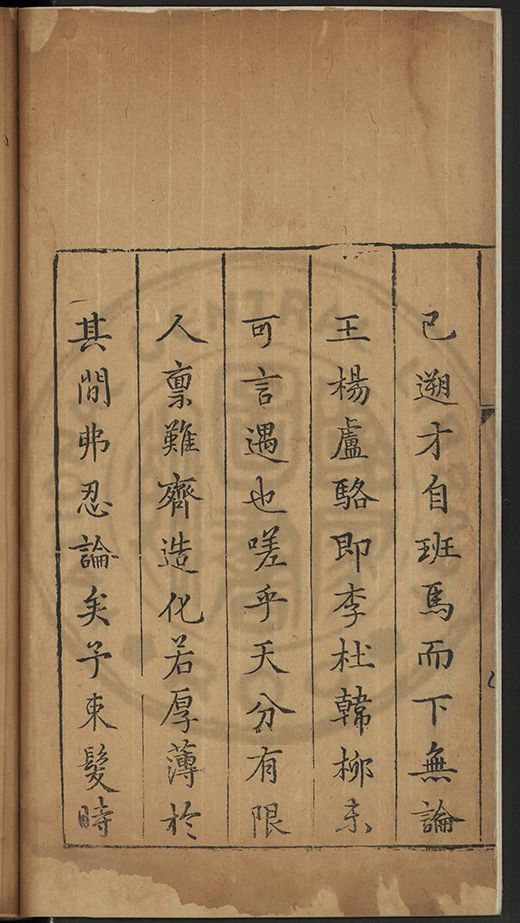 已遡才自班馬而下無論
王楊盧駱即李杜韓柳未
可言遇也嗟乎天分有限
人禀難齊造化若厚薄於
其間弗忍論矣予束髮時